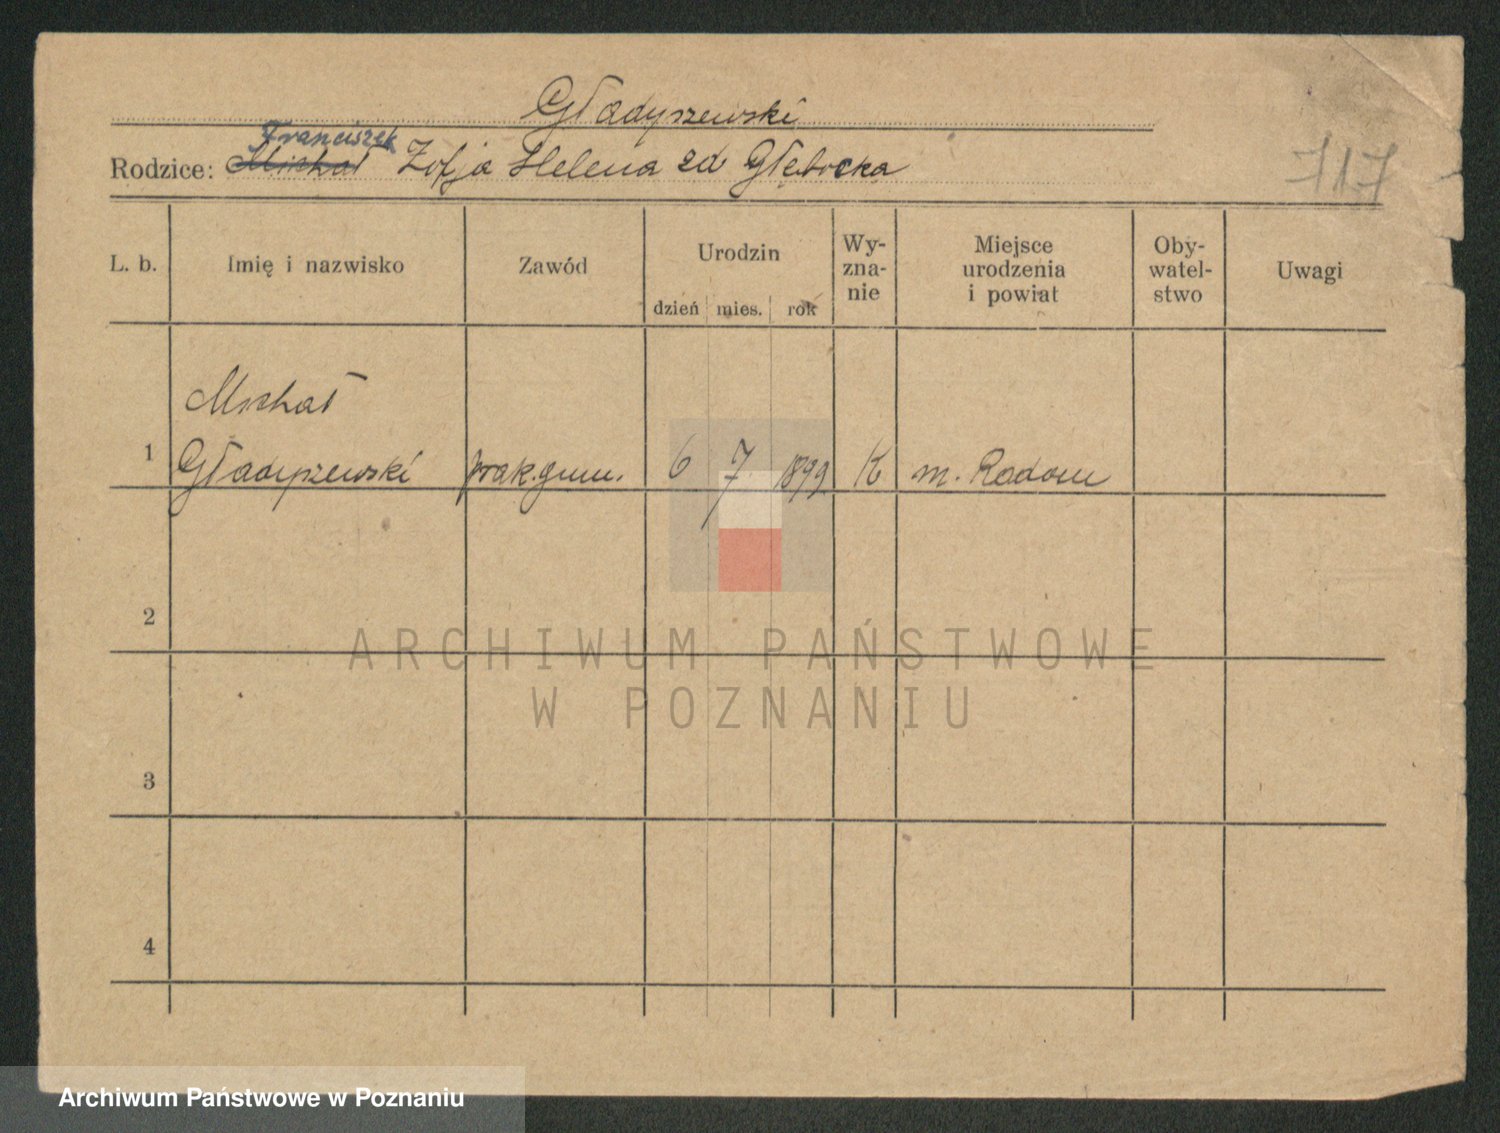 Gładyszewski
Franciszek
Rodzice: Michał Zofja Helena zd Głębocka
717
L. b. Imię i nazwisko Zawód Urodzin Wy-zna-nie Miejsce urodzenia i powiat Oby-watel-stwo Uwagi
dzień mies. rok
Michał
1 Gładyszewski prak. gum. 6 7 1899 K m. Radom
2
ARCHIWUM PAŃSTWOWE
W POZNANIU
3
4
Archiwum Państwowe w Poznaniu